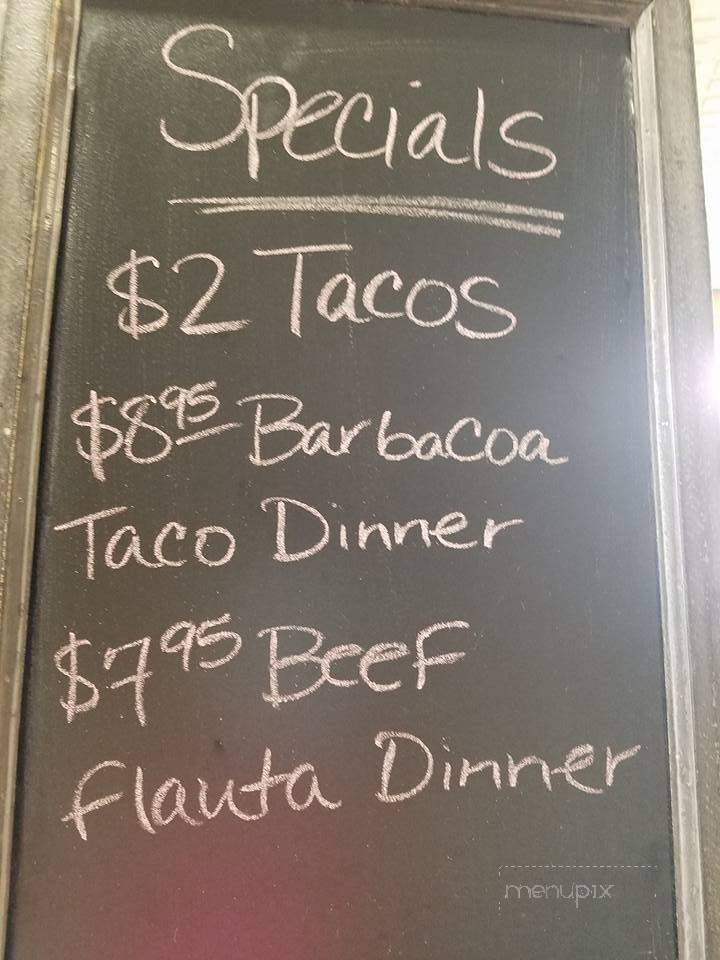 Specials
$2 Tacos
$8.95 Barbacoa
Taco Dinner
$7 95 Beef
Flauta Dinner
menupix